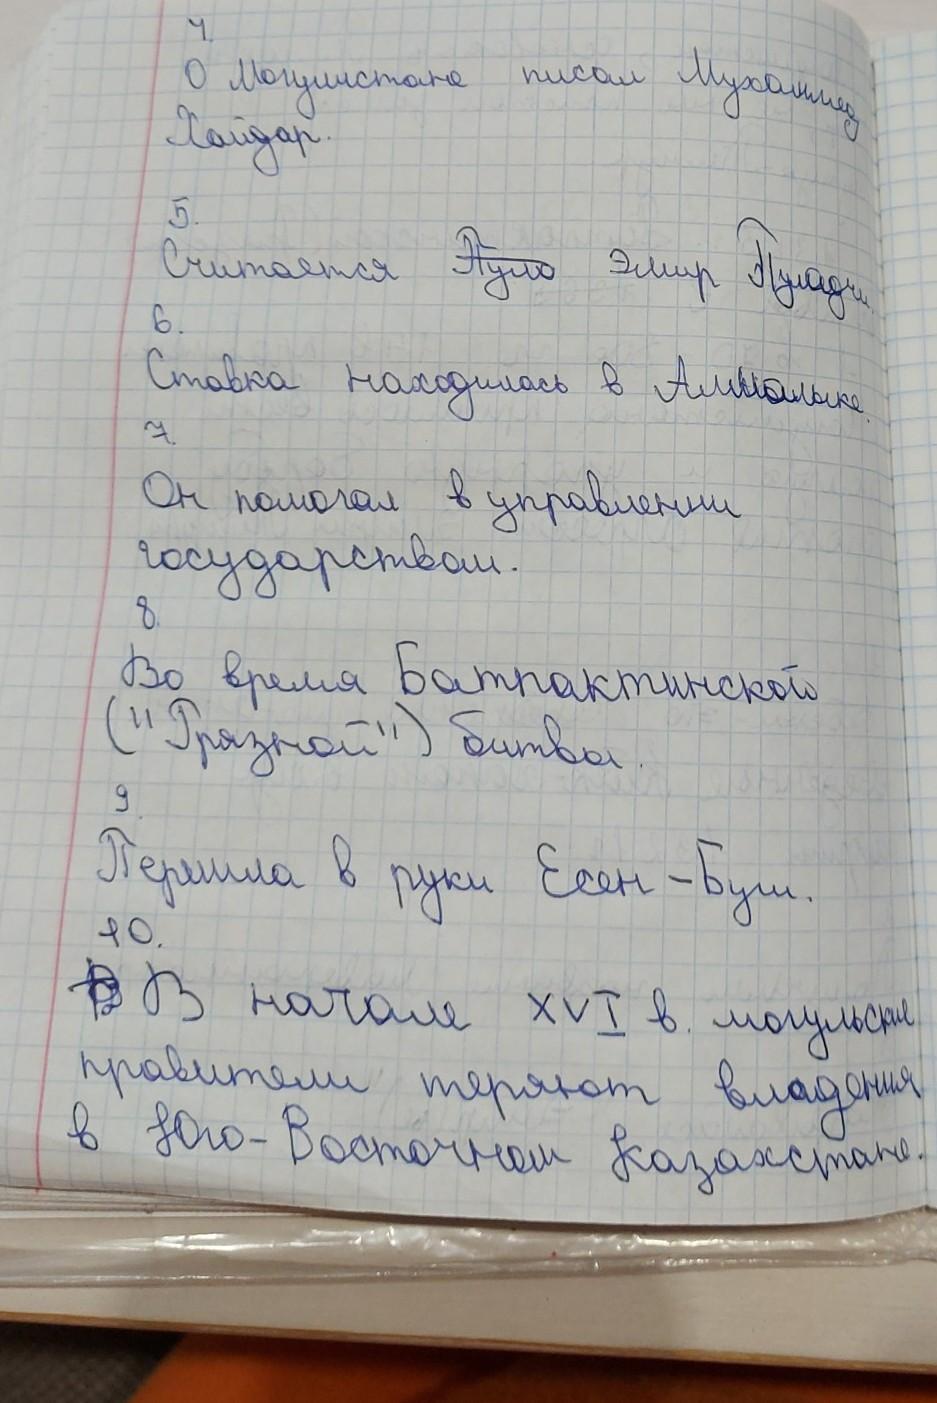 4.
О Могулистане писал Мухаммед
Хайдар.
5.
Считается Пула эмир Пуладчи.
6.
Ставка находилась в Алмалыке.
7.
Он помогал в управлении
государством.
8.
Во время Батпактинской
("Грязной") битвы.
9.
Перешла в руки Есен-Буги.
10.
В В начале XVI в. могульские
правители теряют владения
в Юго-Восточном Казахстане.